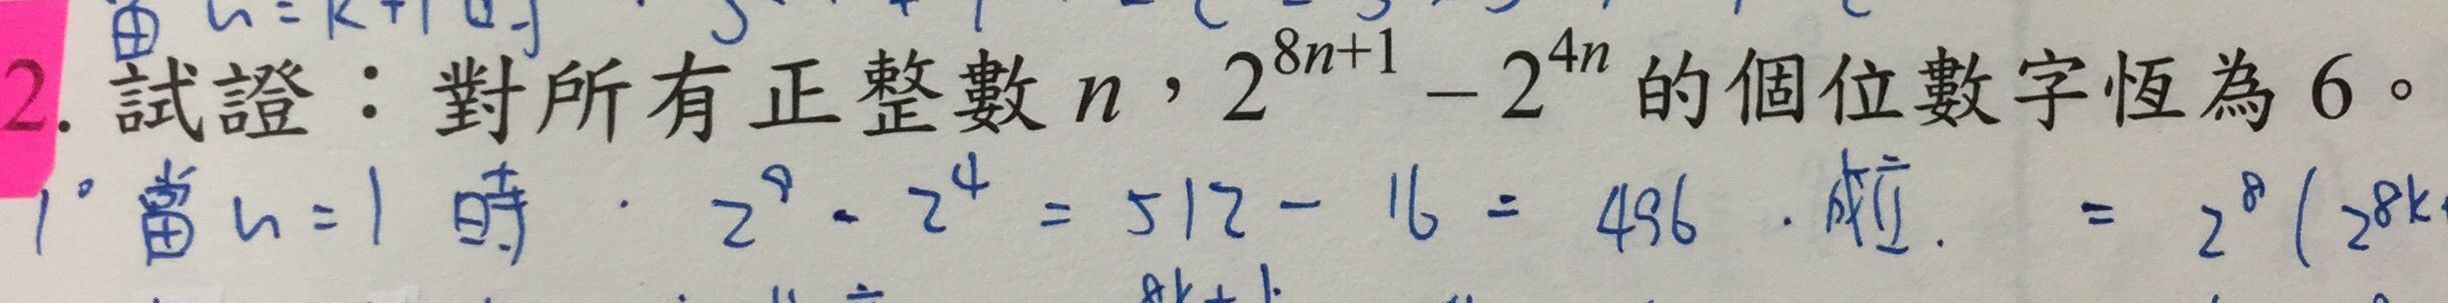 當 n = k + 1 時
2. 試證：對所有正整數 n，2^{8n+1} － 2^{4n} 的個位數字恆為 6。
1° 當 n = 1 時 . 2^9 - 2^4 = 512 - 16 = 496 . 成立. = 2^8 ( 2^{8k